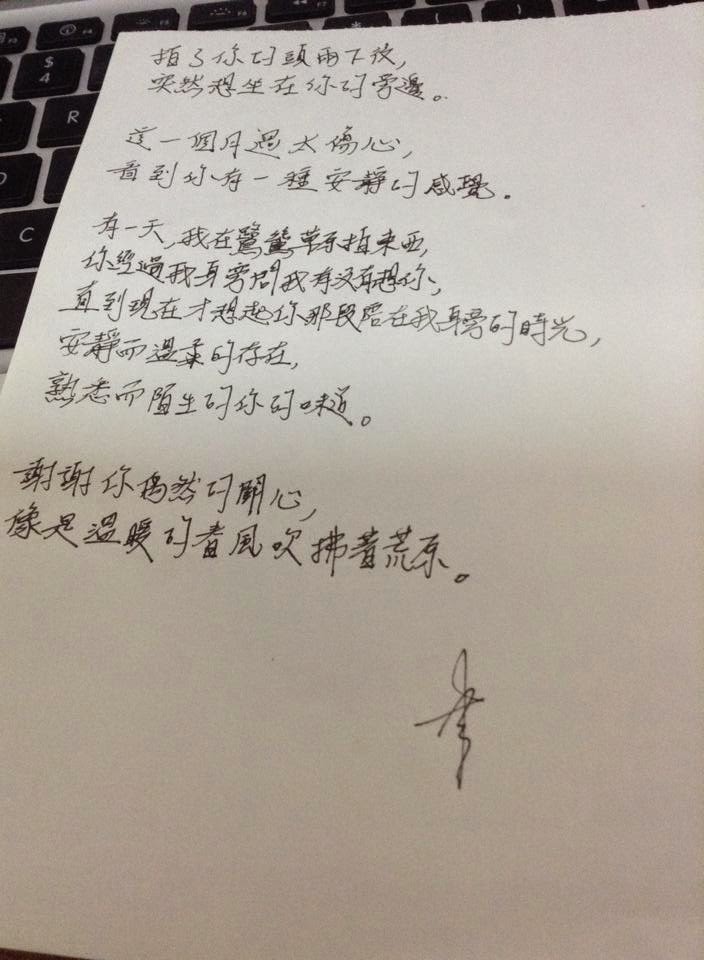 拍了你的頭兩下後,
突然想坐在你的旁邊。
這一個月過太傷心,
看到你有一種安靜的感覺。
有一天,我在鷺鷥草原拍東西,
你經過我身旁問我有沒有想你,
直到現在才想起你那段陪在我身旁的時光,
安靜而溫柔的存在,
熟悉而陌生的你的味道。
謝謝你偶然的關心,
像是溫暖的春風吹拂著荒原。
$
4
R
C